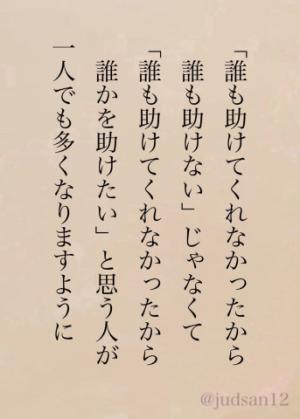 「誰も助けてくれなかったから
誰も助けない」じゃなくて
「誰も助けてくれなかったから
誰かを助けたい」と思う人が
一人でも多くなりますように
@judsan12